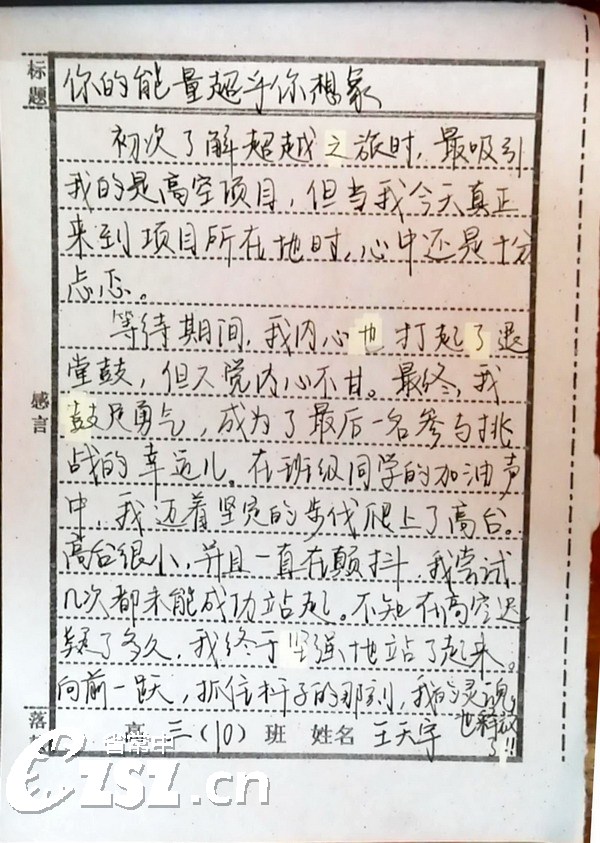 标题
你的能量超乎你想象
初次了解超越之旅时,最吸引
我的是高空项目,但当我今天真正
来到项目所在地时,心中还是十分
忐忑。
等待期间,我内心也打起了退
堂鼓,但又觉内心不甘。最终,我
感言
鼓足勇气,成为了最后一名参与挑
战的幸运儿。在班级同学的加油声
中,我迈着坚定的步伐爬上了高台。
高台很小,并且一直在颤抖,我尝试
几次都未能成功站起。不知在高空迟
疑了多久,我终于坚强地站了起来。
向前一跃,抓住杆子的那刻,我的灵魂
也释放了!!
落
高三(10)班 姓名 王天宇
省常中
CZSZ.cn